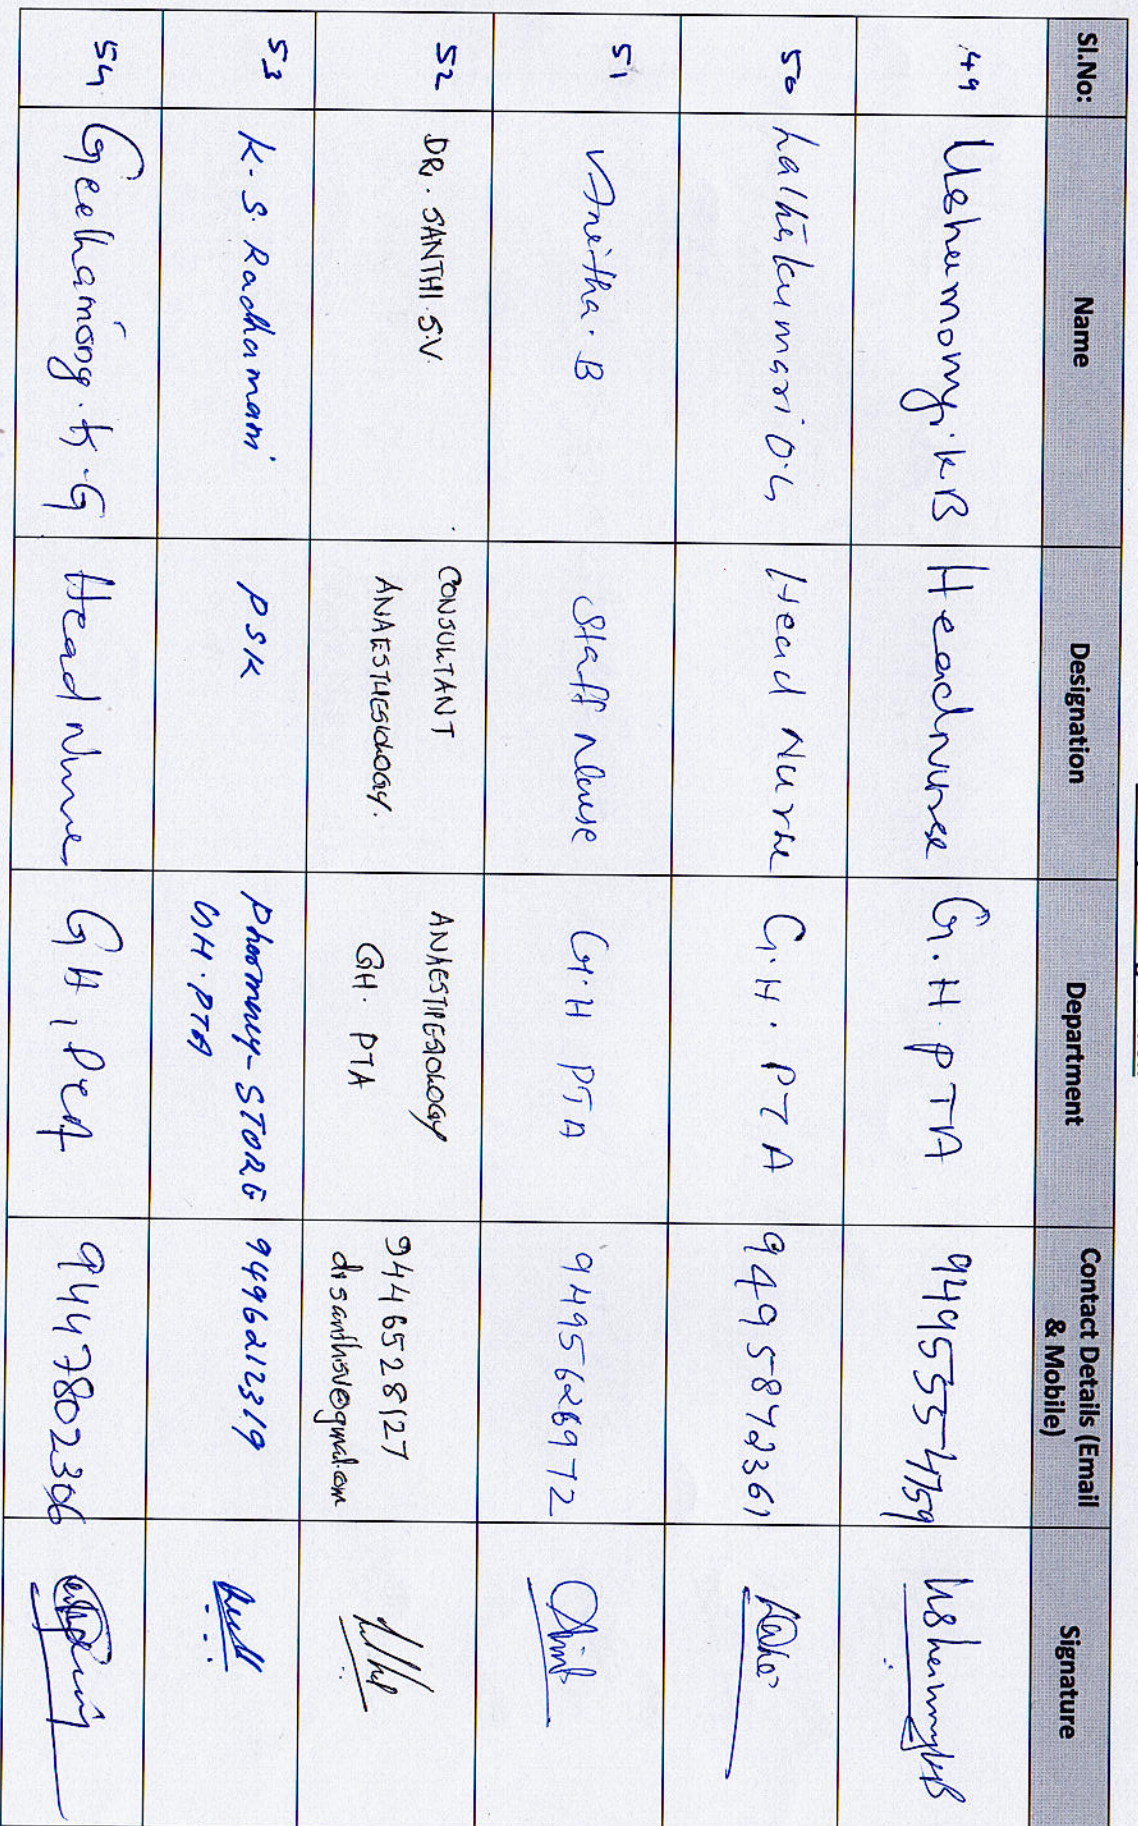 Sl.No: Name Designation Department Contact Details (Email & Mobile) Signature
49 Ushamony.K B Headnurse G.H.PTA
50 Lathikumari O.G Head Nurse G.H.PTA 9495872361
51 Anitha.B Staff Nurse G.H PTA
52 DR. SANTHI.S.V. CONSULTANT ANAESTHESIOLOGY. ANAESTHESIOLOGY GH. PTA 9446528127 drsanthisv@gmail.com
53 K.S. Radhamani PSK Pharmacy-STORE GH.PTA 9496212319
54 Geethamony.K.G Head Nurse GH, PTA 9447802306